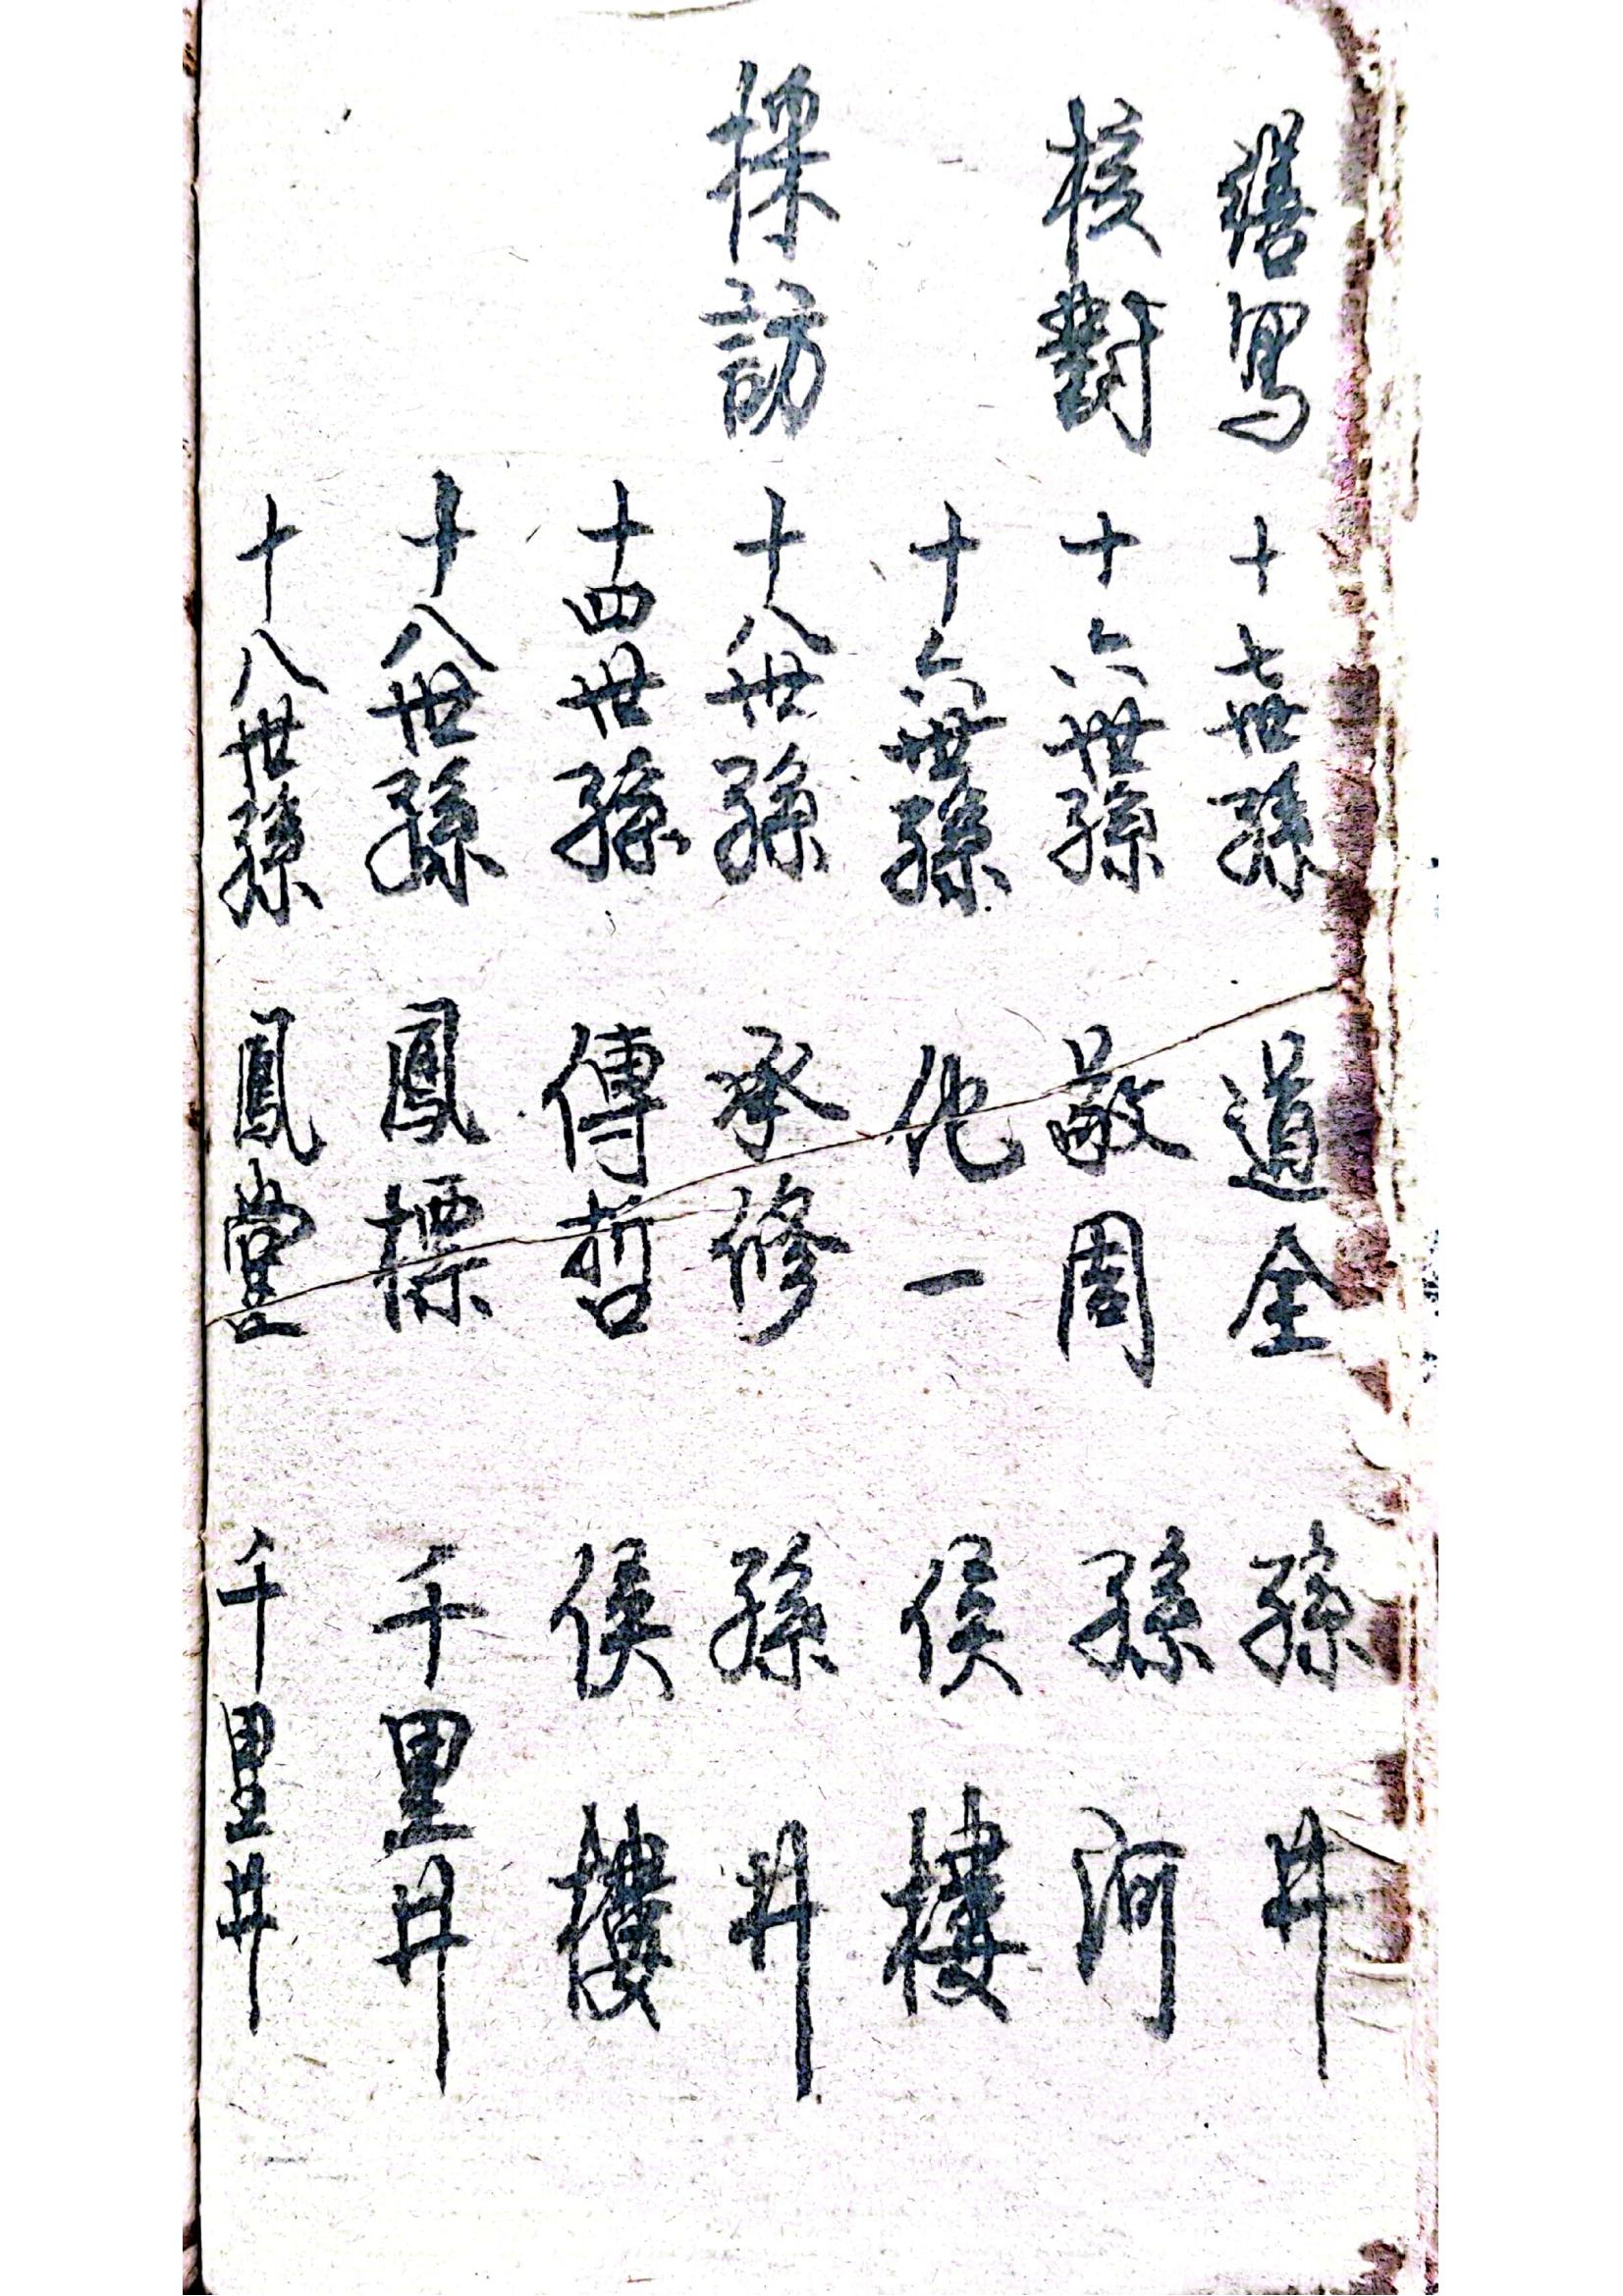 繕寫 十七世孫 道全 孫井
核對 十六世孫 敬周 孫河
十六世孫 化一 侯樓
採訪 十八世孫 承修 孫井
十四世孫 傳哲 侯樓
十八世孫 鳳標 千里井
十八世孫 鳳堂 千里井